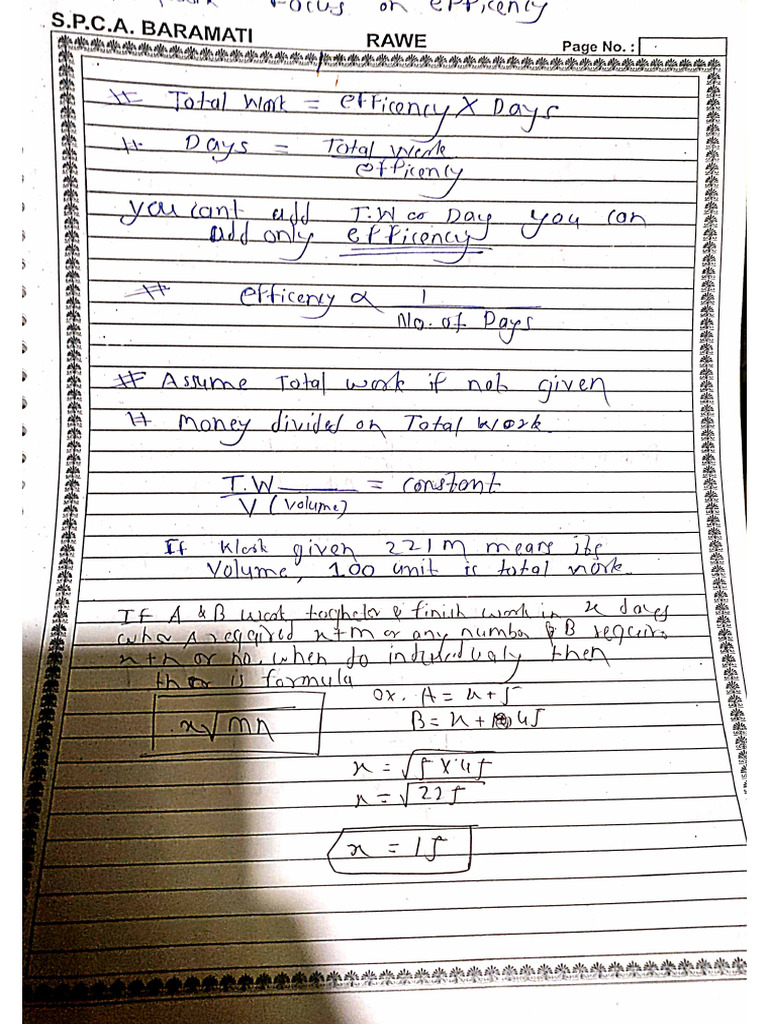 Focus on efficency
S.P.C.A. BARAMATI RAWE Page No. :
# Total Work = efficency X Days
# Days = Total Work
efficency
you cant add T.W or Day you can
add only efficency
# efficency ∝ 1
No. of Days
# Assume Total work if not given
# money divided on Total work
T.W = constant
V (volume)
If Work given 221m means its
Volume, 100 unit is total work
If A & B work togheter & finish work in x days
when A required x+m or any number & B require
x+n or no. when do individualy then
ther is formula
ex. A = x + 5
x√mn B = x + 45
x = √5 X 45
x = √225
x = 15